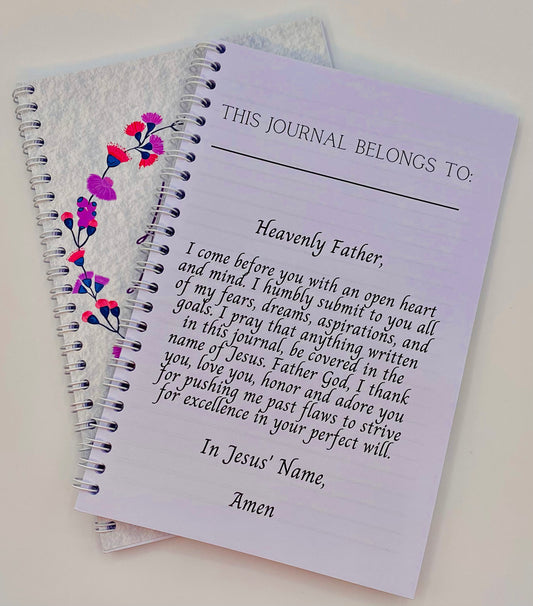 THIS JOURNAL BELONGS TO:
Heavenly Father,
I come before you with an open heart
and mind. I humbly submit to you all
of my fears, dreams, aspirations, and
goals. I pray that anything written
in this journal, be covered in the
name of Jesus. Father God, I thank
you, love you, honor and adore you
for pushing me past flaws to strive
for excellence in your perfect will.
In Jesus' Name,
Amen